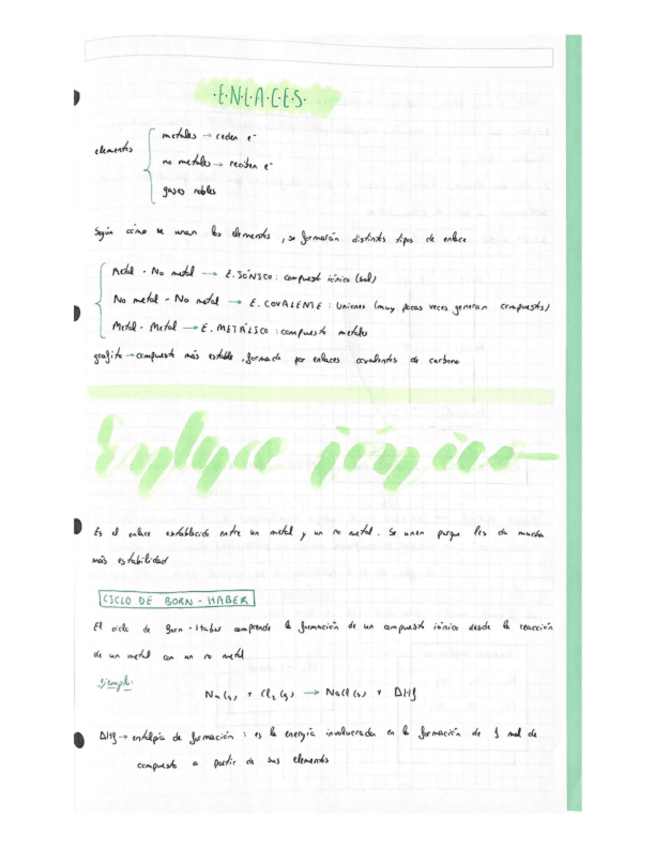 ·E·N·L·A·C·E·S·
metales → ceden e⁻
elementos
no metales → reciben e⁻
gases nobles
Según cómo se unan los elementos, se formarán distintos tipos de enlace
Metal - No metal → E. IÓNICO: compuesto iónico (sal)
No metal - No metal → E. COVALENTE: Uniones (muy pocas veces generan compuestos)
Metal - Metal → E. METÁLICO: compuesto metales
grafito → compuesto más estable, formado por enlaces covalentes de carbono
Enlace iónico
Es el enlace establecido entre un metal y un no metal. Se unen porque les da mucha
más estabilidad
CICLO DE BORN-HABER
El ciclo de Born-Haber comprende la formación de un compuesto iónico desde la reacción
de un metal con un no metal
Ejemplo:
Na(s) + Cl₂(g) → NaCl(s) + ΔHf
ΔHf → entalpía de formación: es la energía involucrada en la formación de 1 mol de
compuesto a partir de sus elementos